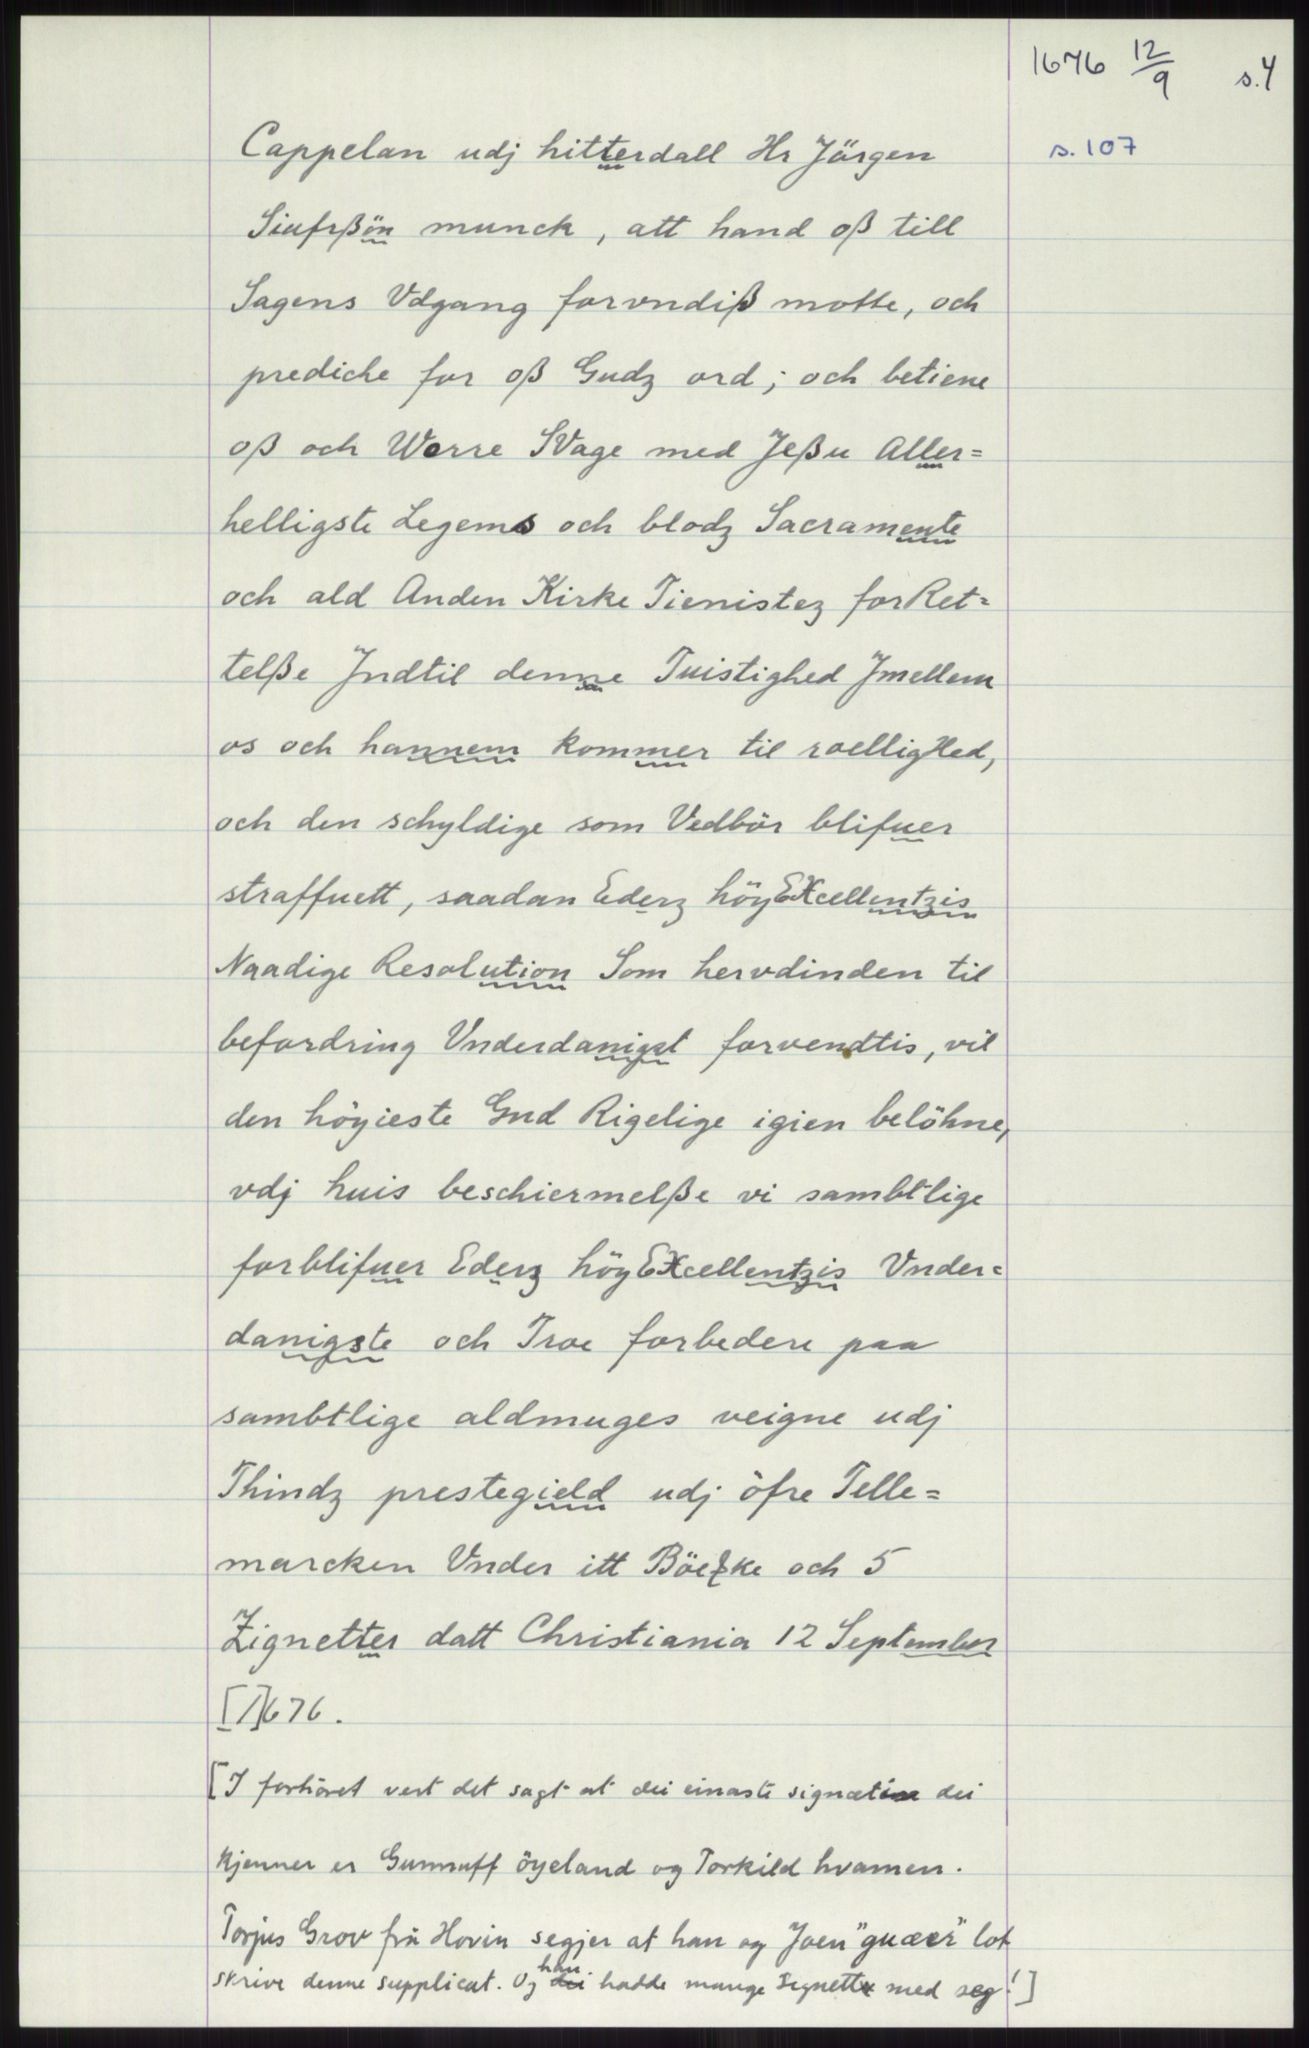 1676 12/9 s. 4
s. 107
Cappelan udj hitterdall Hr Jörgen
Siufrßön munck, att hand oß till
Sagens Vdgang forvndiß motte, och
prediche for oß Gudz ord; och betiene
oß och Worre SVage med Jeßu Aller=
helligste Legems och blodz Sacramente
och ald Anden Kirke Tienistez forRet=
telße Jndtil denne Tuistighed Jmellem
os och hannem kommer til roelligHed,
och den schyldige som Vedbör blifuer
straffuett, saadan Ederz höyEXcellentzis
Naadige Resolution Som hervdinden til
befordring Vnderdanigst forvendtis, vil
den höyieste Gud Rigelige igien belöhne,
vdj huis beschiermelße vi sambtlige
forblifuer Ederz höyEXcellentzis Vnder=
danigste och Troe forbedere paa
sambtlige aldmuges veigne udj
Thindz prestegield udj öfre Telle=
marcken Vnder itt Böeßke och 5
Zignetter datt Christiania 12 September
[1]676.
[I forhöret vert det sagt at dei einaste signet dei
kjenner er Gunnuff öyeland og Torkild hvamen.
Torjus Grov frå Hovin segjer at han og Joen "guæer" lot
skrive denne supplicat. Og han hadde mange Signetter med seg!]